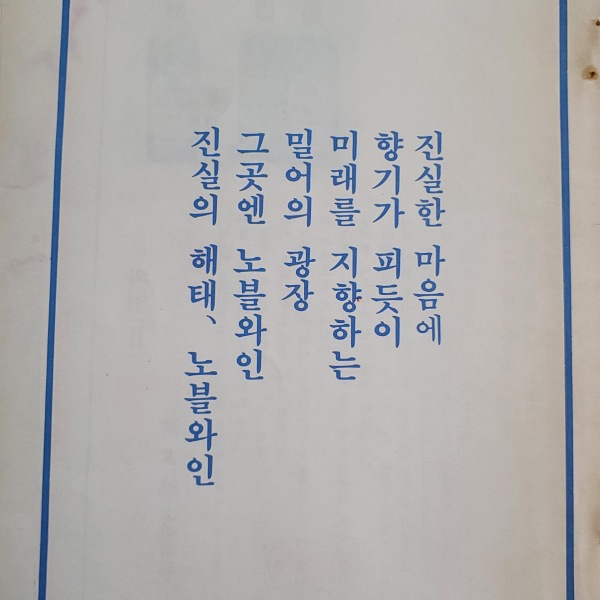 진실한 마음에
향기가 피듯이
미래를 지향하는
밀어의 광장
그곳엔 노블와인
진실의 해태、노블와인